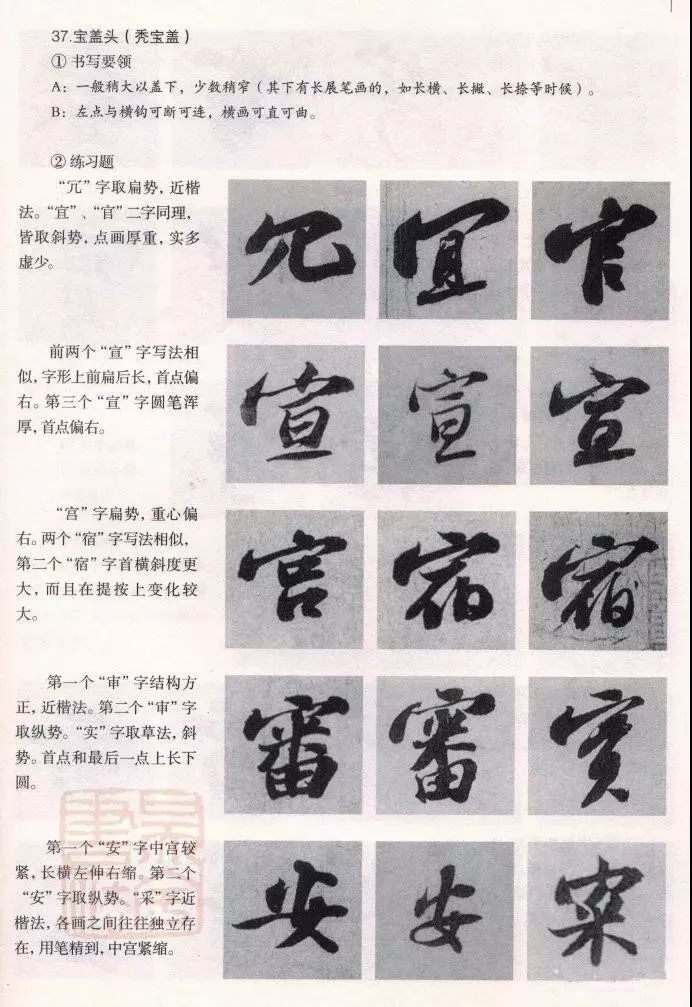 37.宝盖头（秃宝盖）
① 书写要领
A：一般稍大以盖下，少数稍窄（其下有长展笔画的，如长横、长撇、长捺等时候）。
B：左点与横钩可断可连，横画可直可曲。
② 练习题
“冗”字取扁势，近楷
法。“宜”、“官”二字同理，
皆取斜势，点画厚重，实多
虚少。
冗 宜 官
前两个“宣”字写法相
似，字形上前扁后长，首点偏
右。第三个“宣”字圆笔浑
厚，首点偏右。
宣 宣 宣
“宫”字扁势，重心偏
右。两个“宿”字写法相似，
第二个“宿”字首横斜度更
大，而且在提按上变化较
大。
宫 宿 宿
第一个“审”字结构方
正，近楷法。第二个“审”字
取纵势。“实”字取草法，斜
势。首点和最后一点上长下
圆。
審 審 實
第一个“安”字中宫较
紧，长横左伸右缩。第二个
“安”字取纵势。“寀”字近
楷法，各画之间往往独立存
在，用笔精到，中宫紧缩。
安 安 寀